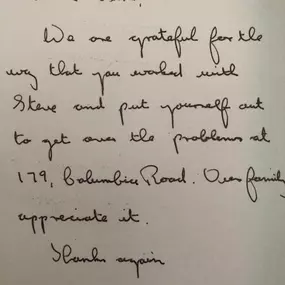 We are grateful for the
way that you worked with
Steve and put yourself out
to get over the problems at
179, Columbia Road. Our family
appreciate it.
Thanks again